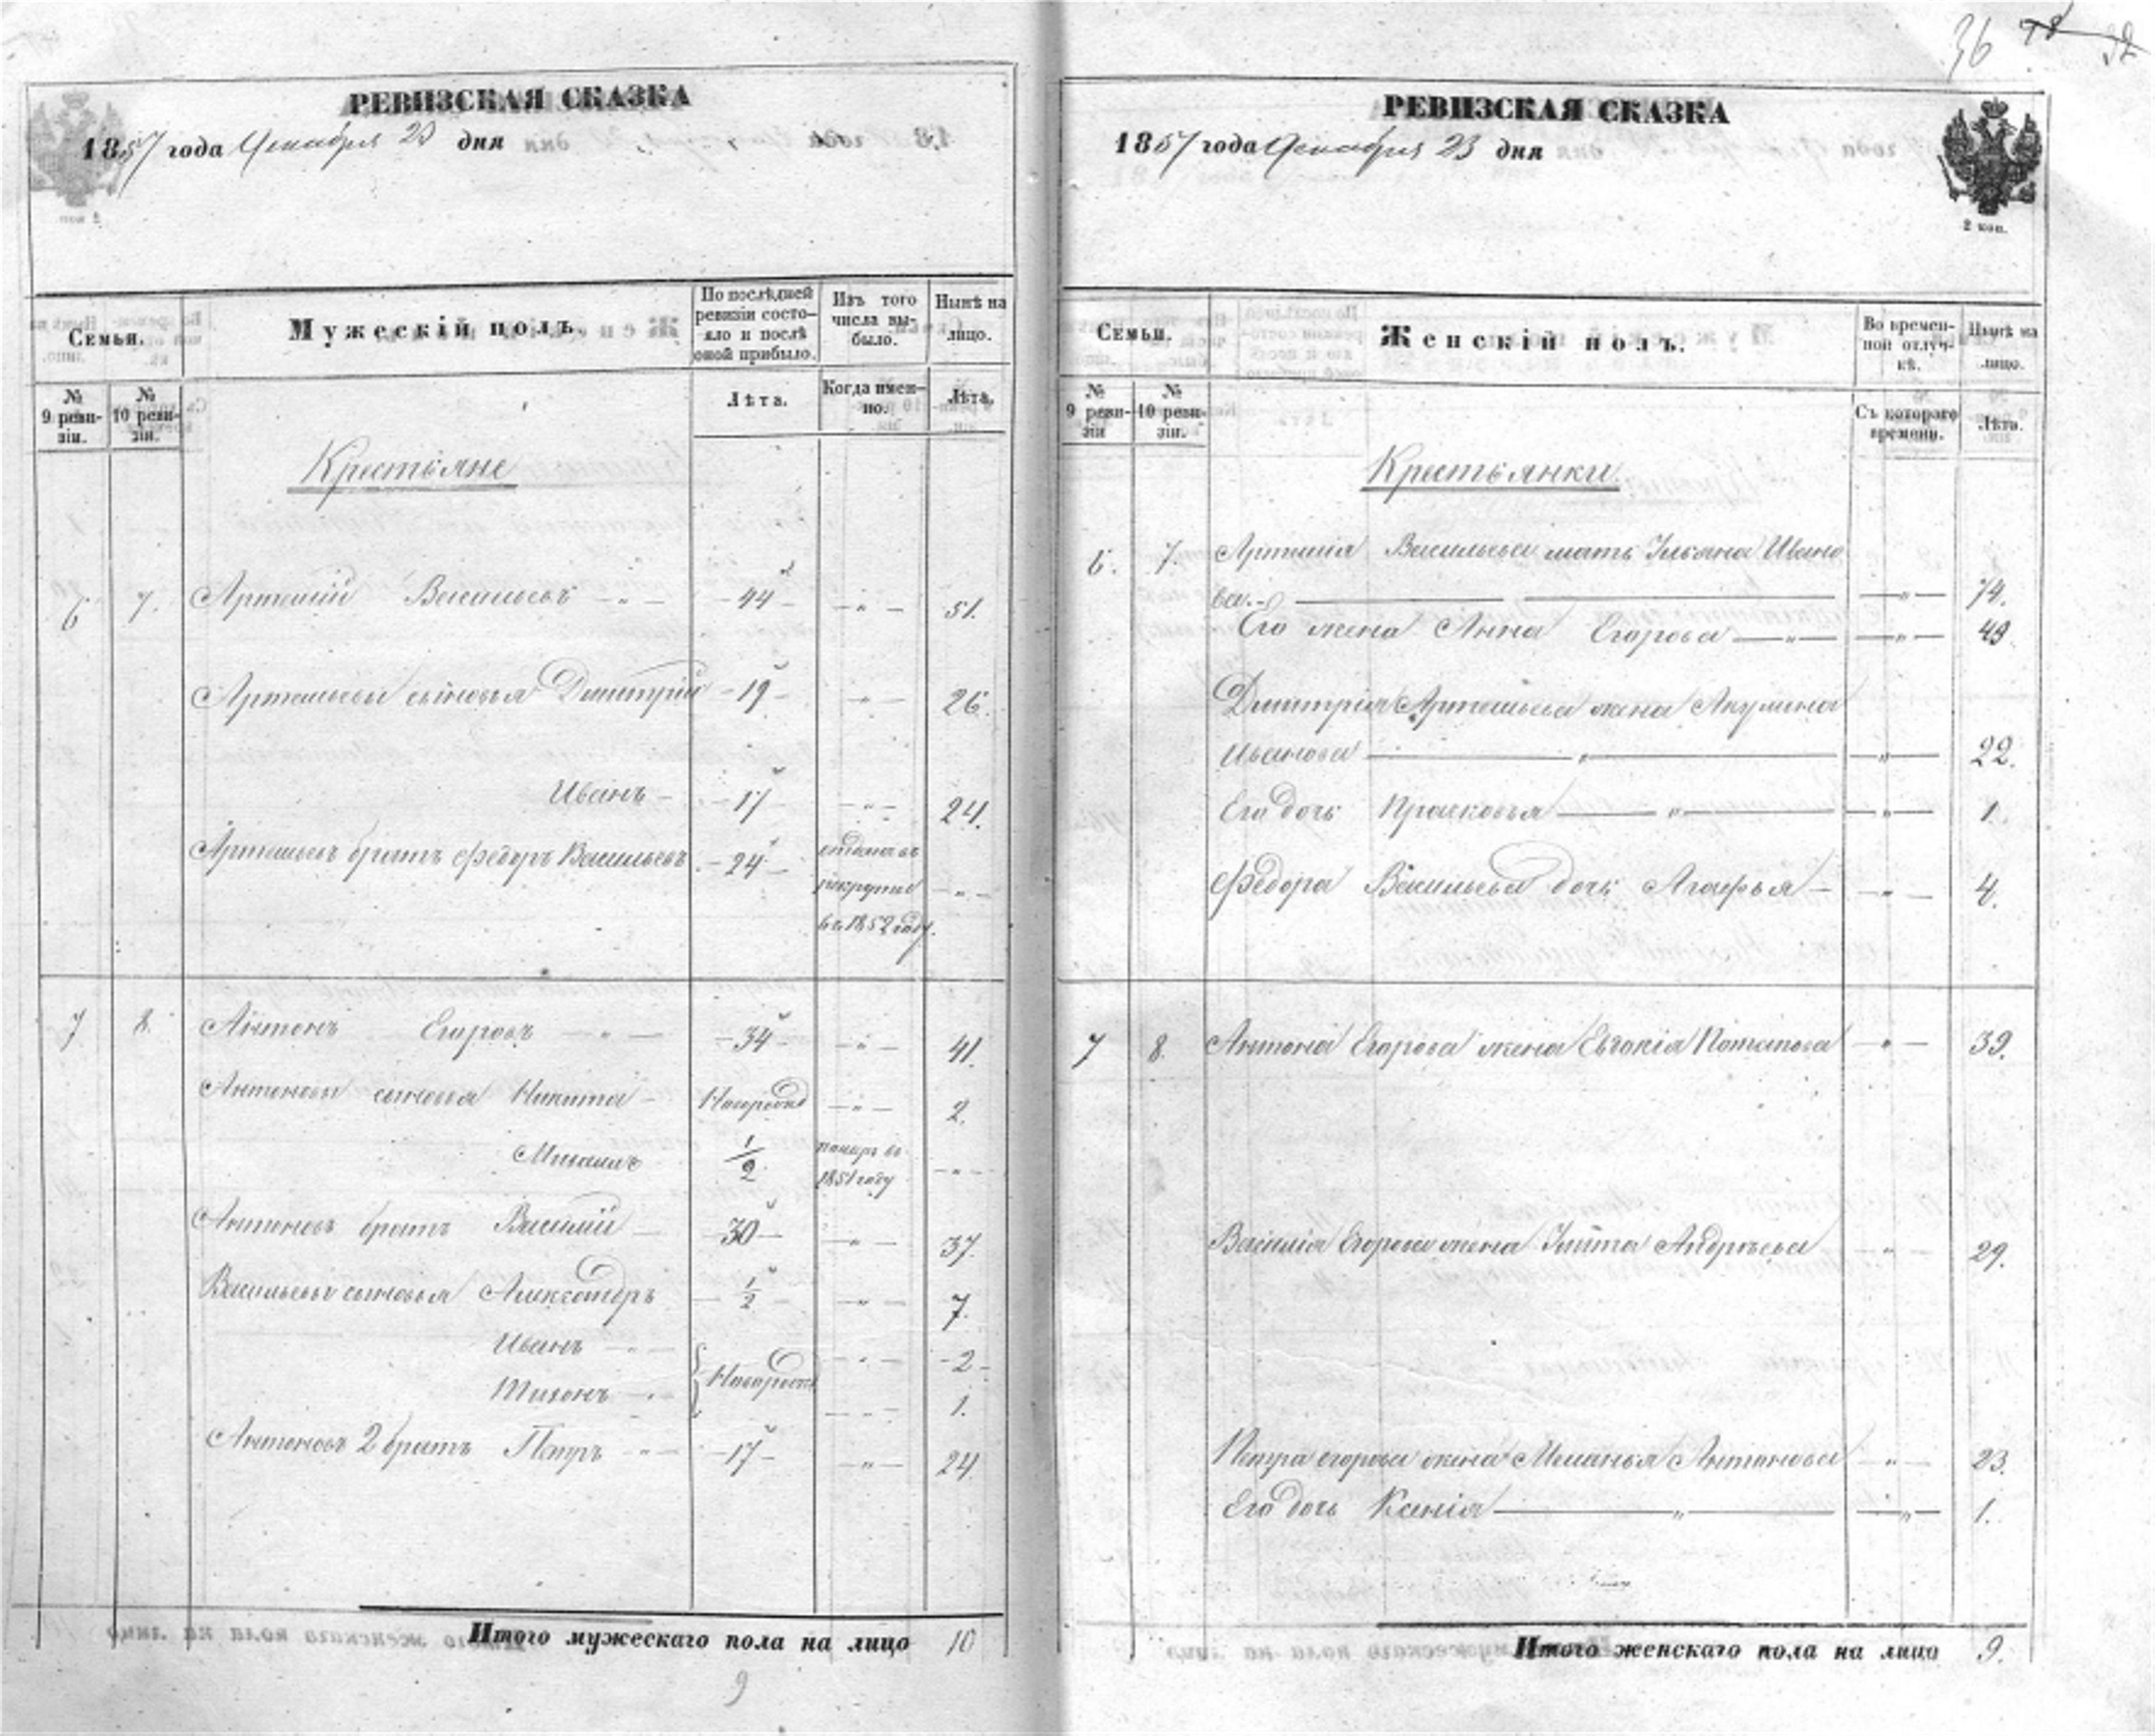 36 78 32
РЕВИЗСКАЯ СКАЗКА
1857 года Декабря 23 дня
Семьи.
Мужескій полъ.
По послѣдней ревизіи состояло и послѣ оной прибыло.
Изъ того числа выбыло.
Нынѣ на лицо.
№ 9 ревизіи.
№ 10 ревизіи.
Лѣта.
Когда именно.
Лѣта.
Крестьяне
6 7. Артемій Васильевъ - " - 44 - " - 51.
Артемьевы сыновья Дмитрій - 19 - - " - 26.
Иванъ - 17 - " - 24.
Артемьевъ братъ Федоръ Васильевъ - 24 - отданъ въ
рекруты - " -
въ 1852 году.
7 8. Антонъ Егоровъ - " - 34 - - " - 41.
Антоновы сыновья Никита - Новорожд - " - 2.
Михаилъ 1/2 померъ въ - " -
1851 году
Антоновъ братъ Василій - 30 - - " - 37.
Васильевы сыновья Александръ 1/2 - " - 7.
Иванъ - " - - " - 2 -
Новорожд
Тихонъ - " - - " - 1.
Антоновъ 2 братъ Петръ - " - 17 - - " - 24.
Итого мужескаго пола на лицо 10
9
РЕВИЗСКАЯ СКАЗКА
1857 года Декабря 23 дня
2 коп.
Семьи.
Женскій полъ.
Во временной отлучкѣ.
Нынѣ на лицо.
№ 9 ревизіи
№ 10 ревизіи.
Съ котораго времени.
Лѣта.
Крестьянки.
6. 7. Артемія Васильева мать Ульяна Ивано
ва. - " - 74.
Его жена Анна Егорова - " - - " - 49.
Дмитрія Артемьева жена Акулина
Иванова - " - - " - 22.
Его дочь Прасковья - " - - " - 1.
Федора Васильева дочь Агафья - - " - 4.
7 8. Антона Егорова жена Евдокія Потапова - " - 39.
Василія Егорова жена Андреева - " - 29.
Петра Егорова жена Меланья Антонова - " - 23.
Его дочь Ксенія - " - - " - 1.
Итого женскаго пола на лицо 9.